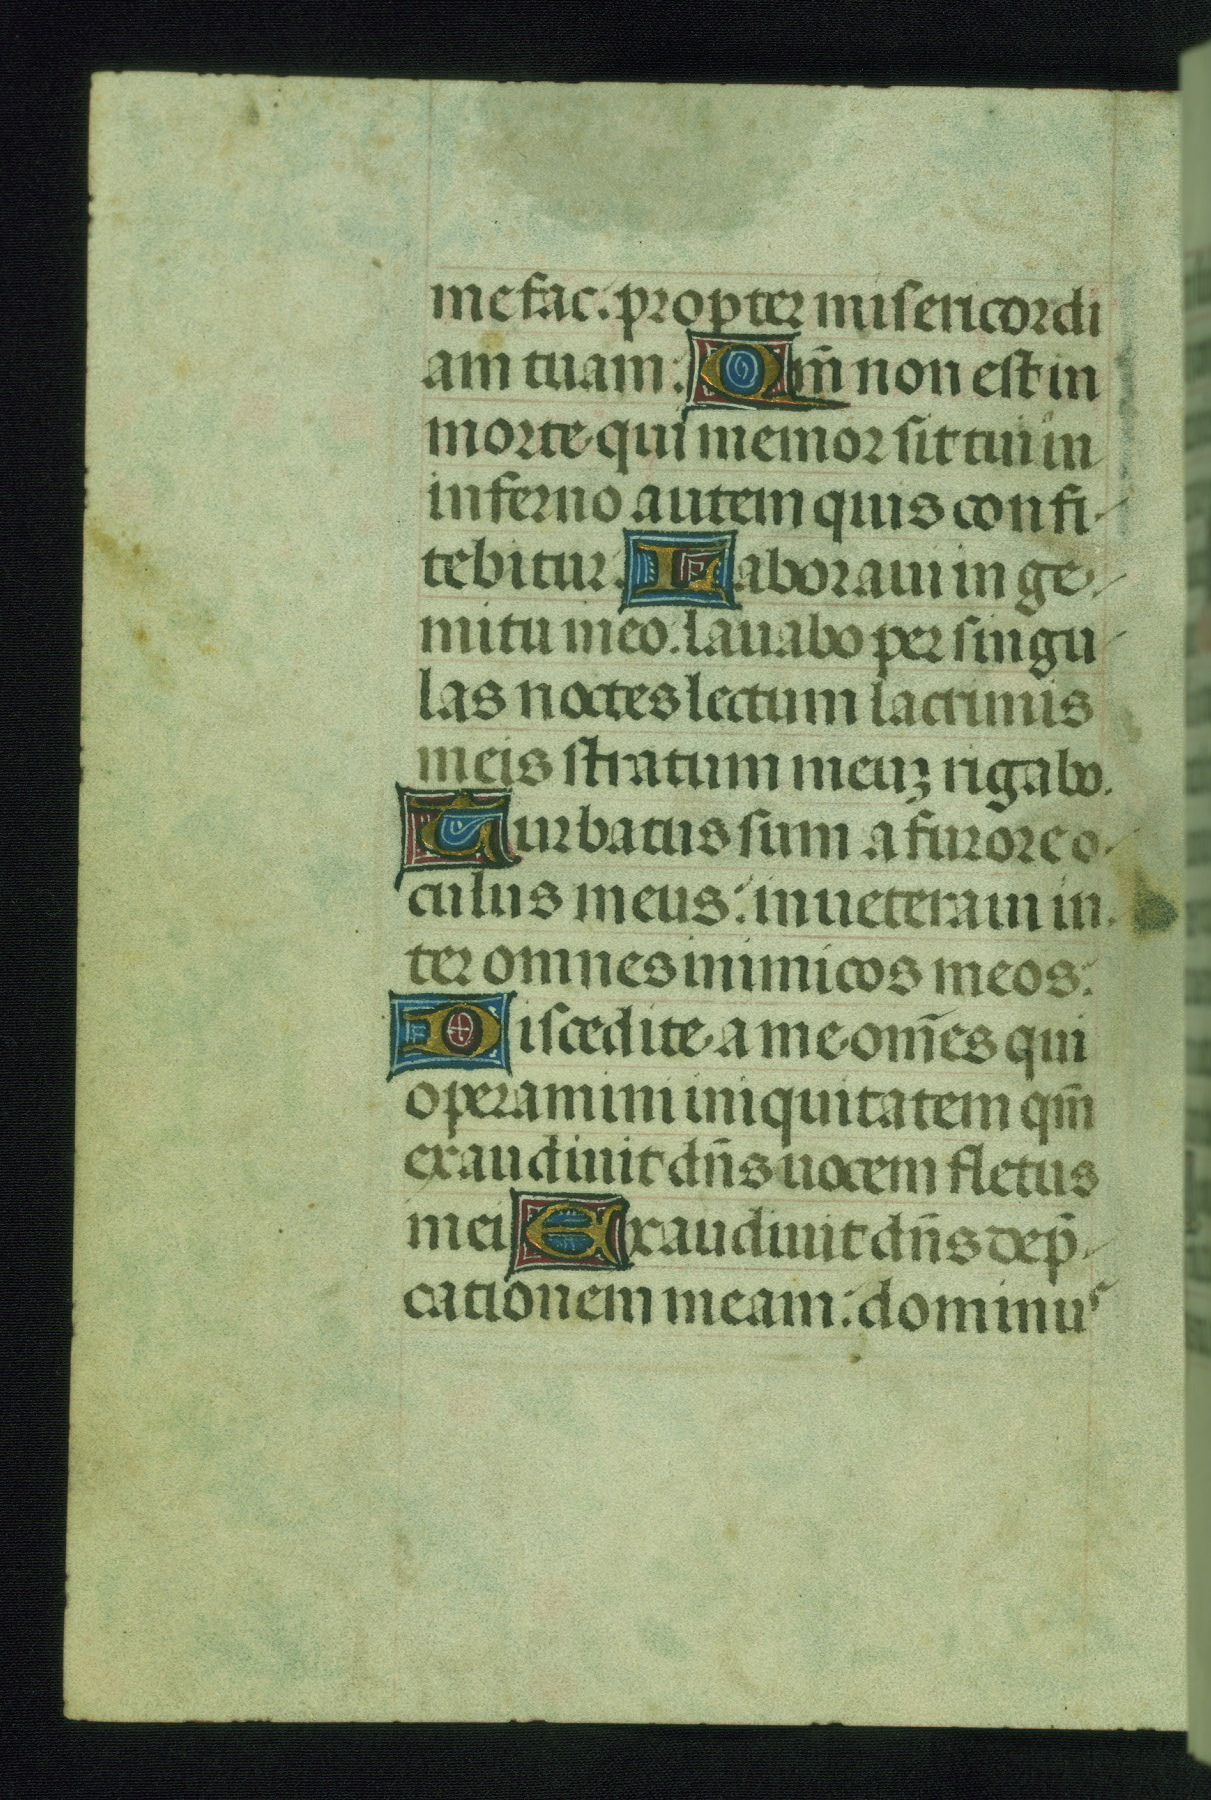 me fac. propter misericordi
am tuam: Qm̄ non est in
morte qui memor sit tui in
inferno autem quis confi-
tebitur. Laboraui in ge-
mitu meo. lauabo per singu
las noctes lectum lacrimis
meis stratum meuꝫ rigabo.
Turbatus sum a furore o-
culus meus: inueteraui in-
ter omnes inimicos meos:
Discedite a me om̄es qui
operamini iniquitatem qm̄
exaudiuit dn̄s uocem fletus
mei Exaudiuit dn̄s dep̄-
cationem meam: dominus